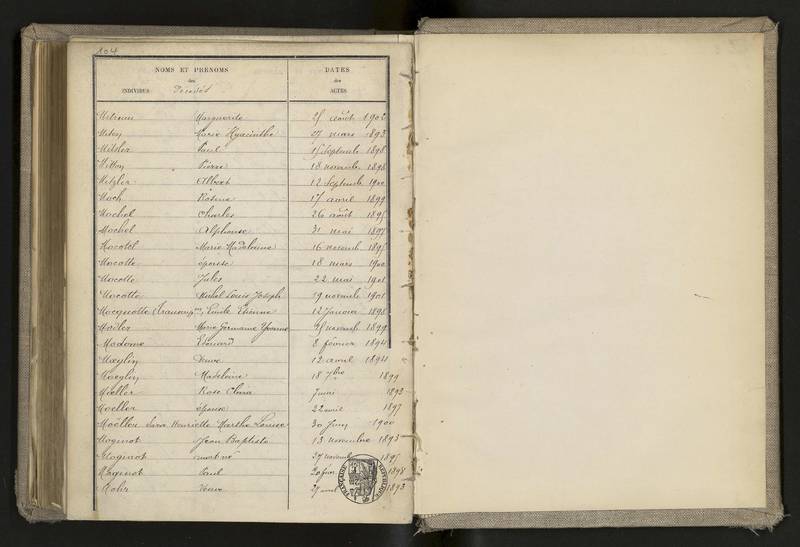 104
NOMS ET PRÉNOMS DATES
des des
INDIVIDUS Décédés ACTES
Marguerite 25 août 1902
Marie Hyacinthe 27 mars 1893
Metzler Paul 15 Septembre 1898
Pierre 18 novembre 1898
Metzler Albert 12 Septembre 1900
Moch Rosine 17 avril 1899
Mochel Charles 26 août 1895
Mochel Alphonse 31 mai 1897
Mocotel Marie Madeleine 16 novemb 1895
Mocotte épouse 18 mars 1900
Mocotte Jules 22 mai 1901
Mocotte Michel Louis Joseph 19 novembre 1901
Mocquotte Emile Etienne 12 Janvier 1898
Modler Marie Germaine Yvonne 25 novemb 1899
Madame Edouard 8 février 1894
Moeglin Veuve 12 avril 1894
Moeglin Madeleine 18 7bre 1899
Moeller Rose Clara 1893
Moeller épouse 22 avril 1897
Moëllou Sara Henriette Marthe Louise 30 Juin 1900
Moginot Jean Baptiste 13 novembre 1893
Moginot mort né 27 novemb 1895
Moginot Paul 1898
Mohr Veuve 29 avril 1893